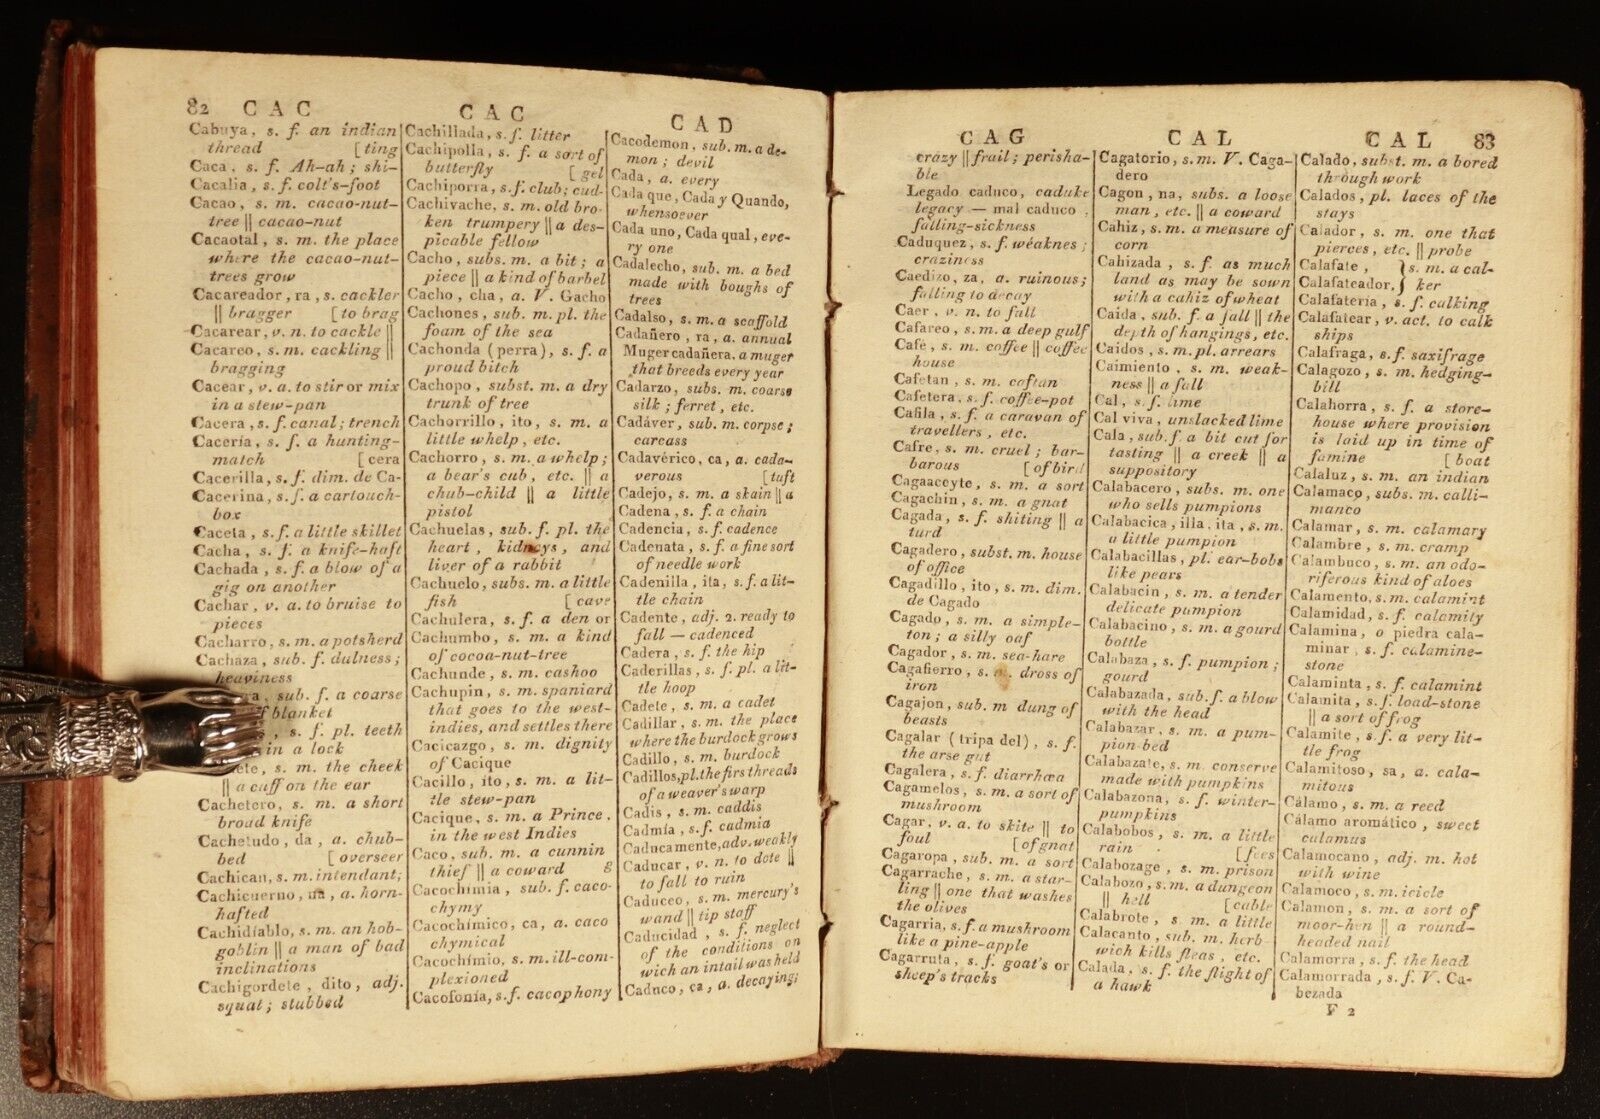 82 CAC
Cabuya, s. f. an indian
thread [ting
Caca, s. f. Ah-ah; shi-
Cacalia, s. f. colt's-foot
Cacao, s. m. cacao-nut-
tree || cacao-nut
Cacaotal, s. m. the place
where the cacao-nut-
trees grow
Cacareador, ra, s. cackler
|| bragger [to brag
Cacarear, v. n. to cackle ||
Cacareo, s. m. cackling ||
bragging
Cacear, v. a. to stir or mix
in a stew-pan
Cacera, s. f. canal; trench
Cacería, s. f. a hunting-
match [cera
Cacerilla, s. f. dim. de Ca-
Cacerina, s. f. a cartouch-
box
Caceta, s. f. a little skillet
Cacha, s. f. a knife-haft
Cachada, s. f. a blow of a
gig on another
Cachar, v. a. to bruise to
pieces
Cacharro, s. m. a potsherd
Cachaza, sub. f. dulness;
heaviness
sub. f. a coarse
blanket
s. f. pl. teeth
in a lock
s. m. the cheek
|| a cuff on the ear
Cachetero, s. m. a short
broad knife
Cachetudo, da, a. chub-
bed [overseer
Cachican, s. m. intendant;
Cachicuerno, na, a. horn-
hafted
Cachidiablo, s. m. an hob-
goblin || a man of bad
inclinations
Cachigordete, dito, adj.
squat; stubbed
CAC
Cachillada, s. f. litter
Cachipolla, s. f. a sort of
butterfly [gel
Cachiporra, s. f. club; cud-
Cachivache, s. m. old bro-
ken trumpery || a des-
picable fellow
Cacho, subs. m. a bit; a
piece || a kind of barbel
Cacho, cha, a. V. Gacho
Cachones, sub. m. pl. the
foam of the sea
Cachonda (perra), s. f. a
proud bitch
Cachopo, subst. m. a dry
trunk of tree
Cachorrillo, ito, s. m. a
little whelp, etc.
Cachorro, s. m. a whelp;
a bear's cub, etc. || a
chub-child || a little
pistol
Cachuelas, sub. f. pl. the
heart, kidneys, and
liver of a rabbit
Cachuelo, subs. m. a little
fish [cave
Cachulera, s. f. a den or
Cachumbo, s. m. a kind
of cocoa-nut-tree
Cachunde, s. m. cashoo
Cachupin, s. m. spaniard
that goes to the west-
indies, and settles there
Cacicazgo, s. m. dignity
of Cacique
Cacillo, ito, s. m. a lit-
tle stew-pan
Cacique, s. m. a Prince.
in the west Indies
Caco, sub. m. a cunnin
thief || a coward g
Cacochîmia, sub. f. caco-
chymy
Cacochîmico, ca, a. caco
chymical
Cacochîmio, s. m. ill-com-
plexioned
Cacofonía, s. f. cacophony
CAD
Cacodemon, sub. m. a de-
mon; devil
Cada, a. every
Cada que, Cada y Quando,
whensoever
Cada uno, Cada qual, eve-
ry one
Cadalecho, sub. m. a bed
made with boughs of
trees
Cadalso, s. m. a scaffold
Cadañero, ra, a. annual
Muger cadañera, a muger
that breeds every year
Cadarzo, subs. m. coarse
silk; ferret, etc.
Cadáver, sub. m. corpse;
carcass
Cadavérico, ca, a. cada-
verous [tuft
Cadejo, s. m. a skain || a
Cadena, s. f. a chain
Cadencia, s. f. cadence
Cadenata, s. f. a fine sort
of needle work
Cadenilla, ita, s. f. a lit-
tle chain
Cadente, adj. 2. ready to
fall — cadenced
Cadera, s. f. the hip
Caderillas, s. f. pl. a lit-
tle hoop
Cadete, s. m. a cadet
Cadillar, s. m. the place
where the burdock grows
Cadillo, s. m. burdock
Cadillos, pl. the firs threads
of a weaver's warp
Cadis, s. m. caddis
Cadmía, s. f. cadmia
Caducamente, adv. weakly
Caducar, v. n. to dote ||
to fall to ruin
Caduceo, s. m. mercury's
wand || tip staff
Caducidad, s. f. neglect
of the conditions on
wich an intail was held
Caduco, ca, a. decaying;
CAG
crazy || frail; perisha-
ble
Legado caduco, caduke
legacy — mal caduco,
falling-sickness
Caduquez, s. f. weaknes;
craziness
Caedizo, za, a. ruinous;
falling to decay
Caer, v. n. to fall
Cafareo, s. m. a deep gulf
Café, s. m. coffee || coffee
house
Cafetan, s. m. caftan
Cafetera, s. f. coffee-pot
Cafila, s. f. a caravan of
travellers, etc.
Cafre, s. m. cruel; bar-
barous [of bird
Cagaaceyte, s. m. a sort
Cagachin, s. m. a gnat
Cagada, s. f. shiting || a
turd
Cagadero, subst. m. house
of office
Cagadillo, ito, s. m. dim.
de Cagado
Cagado, s. m. a simple-
ton; a silly oaf
Cagador, s. m. sea-hare
Cagafierro, s. m. dross of
iron
Cagajon, sub. m dung of
beasts
Cagalar (tripa del), s. f.
the arse gut
Cagalera, s. f. diarrhœa
Cagamelos, s. m. a sort of
mushroom
Cagar, v. a. to skite || to
foul [of gnat
Cagaropa, sub. m. a sort
Cagarrache, s. m. a star-
ling || one that washes
the olives
Cagarria, s. f. a mushroom
like a pine-apple
Cagarruta, s. f. goat's or
sheep's tracks
CAL
Cagatorio, s. m. V. Caga-
dero
Cagon, na, subs. a loose
man, etc. || a coward
Cahiz, s. m. a measure of
corn
Cahizada, s. f. as much
land as may be sown
with a cahiz of wheat
Caida, sub. f. a fall || the
depth of hangings, etc.
Caidos, s. m. pl. arrears
Caimiento, s. m. weak-
ness || a fall
Cal, s. f. lime
Cal viva, unslacked lime
Cala, sub. f. a bit cut for
tasting || a creek || a
suppository
Calabacero, subs. m. one
who sells pumpions
Calabacica, illa, ita, s. m.
a little pumpion
Calabacillas, pl. ear-bobs
like pears
Calabacin, s. m. a tender
delicate pumpion
Calabacino, s. m. a gourd
bottle
Calabaza, s. f. pumpion;
gourd
Calabazada, sub. f. a blow
with the head
Calabazar, s. m. a pum-
pion-bed
Calabazate, s. m. conserve
made with pumpkins
Calabazona, s. f. winter-
pumpkins
Calabobos, s. m. a little
rain [fees
Calabozage, s. m. prison
Calabozo, s. m. a dungeon
|| hell [cable
Calabrote, s m. a little
Calacanto, sub. m. herb
wich kills fleas, etc.
Calada, s. f. the flight of
a hawk
CAL 83
Calado, subst. m. a bored
through work
Calados, pl. laces of the
stays
Calador, s. m. one that
pierces, etc. || probe
Calafate, } s. m. a cal-
Calafateador, } ker
Calafatería, s. f. calking
Calafatear, v. act. to calk
ships
Calafraga, s. f. saxifrage
Calagozo, s. m. hedging-
bill
Calahorra, s. f. a store-
house where provision
is laid up in time of
famine [boat
Calaluz, s. m. an indian
Calamaco, subs. m. calli-
manco
Calamar, s. m. calamary
Calambre, s. m. cramp
Calambuco, s. m. an odo-
riferous kind of aloes
Calamento, s. m. calamint
Calamidad, s. f. calamity
Calamina, o piedra cala-
minar, s. f. calamine-
stone
Calaminta, s. f. calamint
Calamita, s. f. load-stone
|| a sort of frog
Calamite, s. f. a very lit-
tle frog
Calamitoso, sa, a. cala-
mitous
Cálamo, s. m. a reed
Cálamo aromático, sweet
calamus
Calamocano, adj. m. hot
with wine
Calamoco, s. m. icicle
Calamon, s. m. a sort of
moor-hen || a round-
headed nail
Calamorra, s. f. the head
Calamorrada, s. f. V. Ca-
bezada
F 2